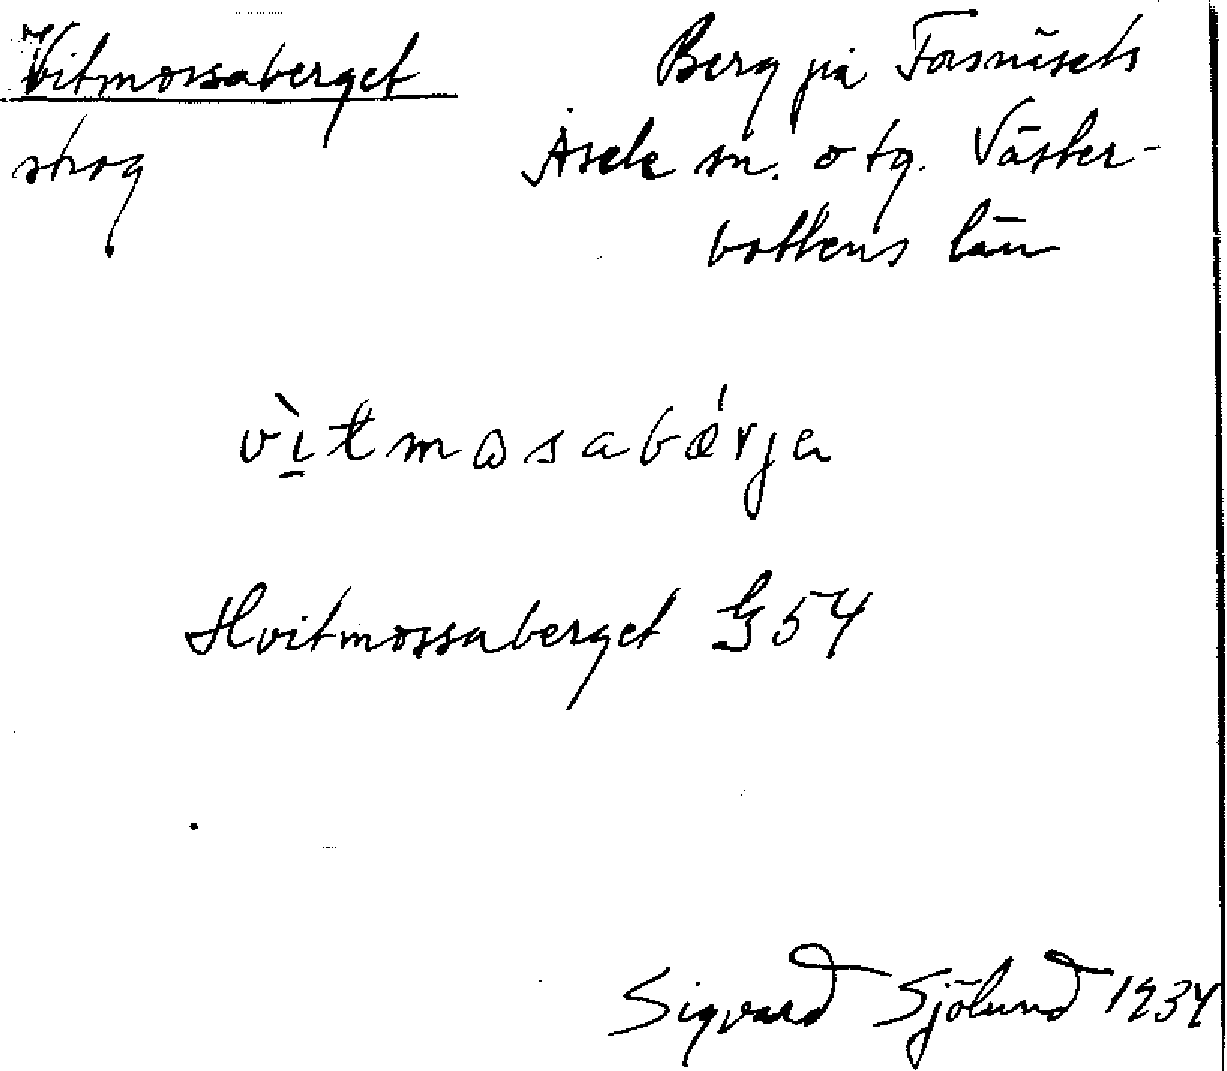 Vitmossaberget
skog
Berg på Torsnäsets
Åsele sn. o tg. Väster-
bottens län
vı̠̀tmɷsabǽrjɐ
Hvitmossaberget G 54
Sigvard Sjölund 1934